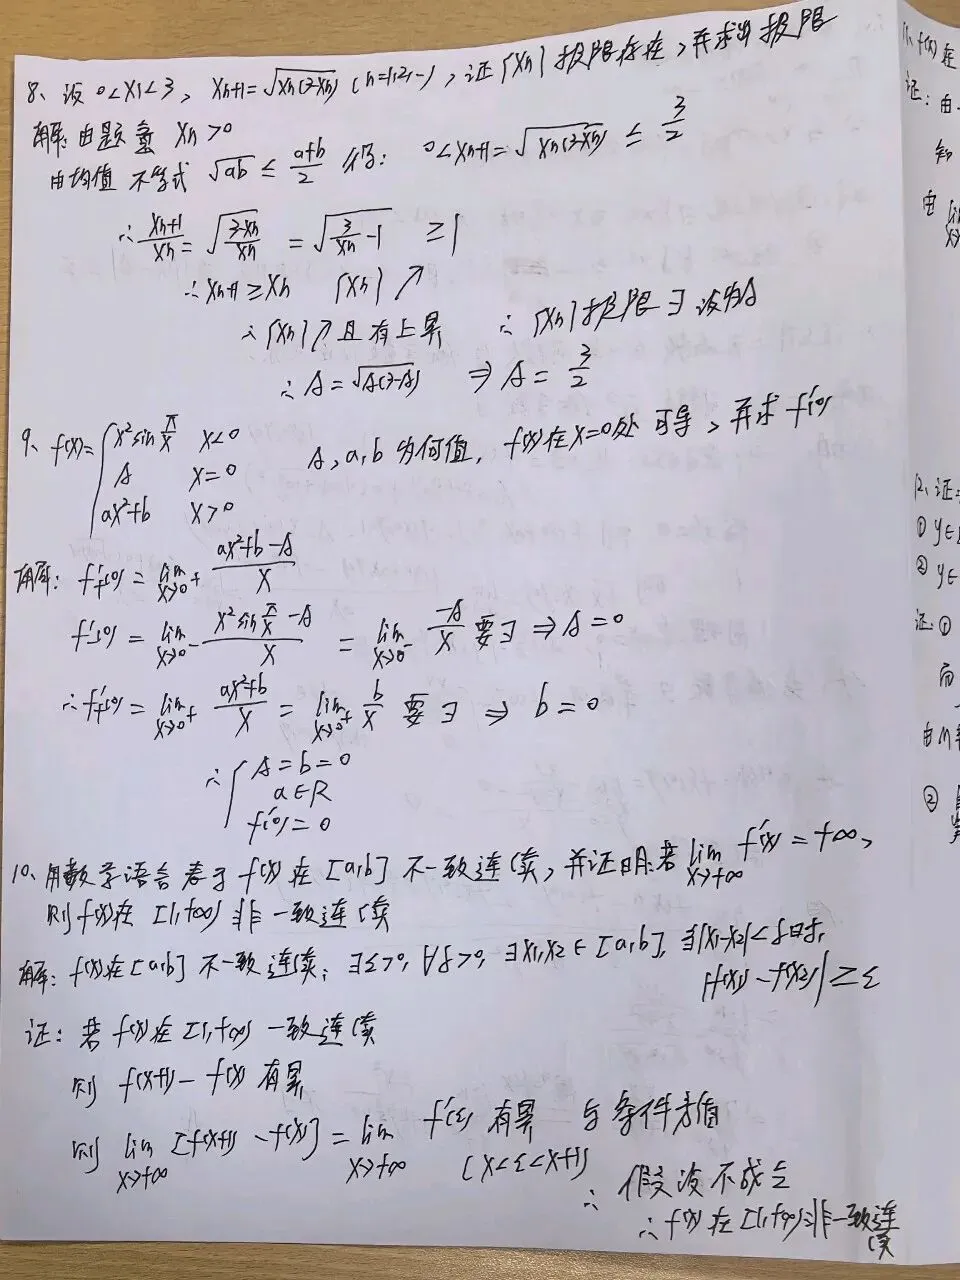 8、设 0<x₁<3, xₙ₊₁=√(xₙ(3-xₙ)) (n=1,2,…), 证{xₙ}极限存在, 并求出极限
解: 由题意 xₙ>0
由均值不等式 √ab ≤ (a+b)/2 得: 0<xₙ₊₁=√(xₙ(3-xₙ)) ≤ 3/2
∴ xₙ₊₁/xₙ = √((3-xₙ)/xₙ) = √(3/xₙ -1) ≥1
∴ xₙ₊₁≥xₙ {xₙ}↗
∴ {xₙ}↗且有上界 ∴ {xₙ}极限∃ 设为A
∴ A=√(A(3-A)) ⇒ A=3/2
9、f(x)={ x²sin π/x x<0
A x=0
ax²+b x>0
A,a,b 为何值, f(x)在x=0处可导, 并求f'(0)
解: f'₊(0)=lim x→0⁺ (ax²+b-A)/x
f'₋(0)=lim x→0⁻ (x²sin π/x -A)/x = lim x→0⁻ -A/x 要∃ ⇒A=0
∴f'₊(0)=lim x→0⁺ (ax²+b)/x = lim x→0⁺ b/x 要∃ ⇒ b=0
∴{ A=b=0
a∈R
f'(0)=0
10、用数学语言表示 f(x)在[a,b]不一致连续, 并证明:若 lim x→+∞ f'(x)=+∞,
则f(x)在[1,+∞)非一致连续
解: f(x)在[a,b]不一致连续: ∃ε>0, ∀δ>0, ∃x₁,x₂∈[a,b], 当|x₁-x₂|<δ时,
|f(x₁)-f(x₂)|≥ε
证: 若f(x)在[1,+∞)一致连续
则 f(x+1)-f(x)有界
则 lim x→+∞ [f(x+1)-f(x)] = lim x→+∞ f'(ξ) 有界 与条件矛盾
(x<ξ<x+1)
∴ 假设不成立
∴ f(x)在[1,+∞)非一致连
续
11、f(x)在
证: 由
知
由 lim
x→
12、证
① y∈
② y∈
证:①
而
由
②